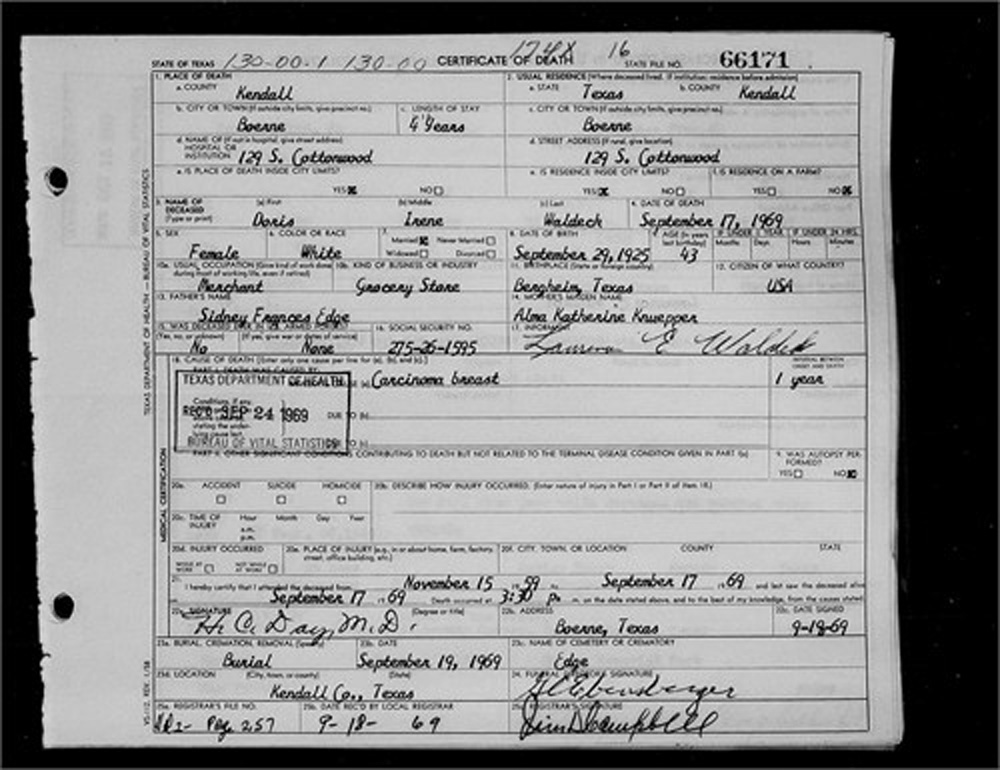 174X 16
STATE OF TEXAS 130-00-1 130-00 CERTIFICATE OF DEATH STATE FILE NO. 66171
1. PLACE OF DEATH
a. COUNTY Kendall
2. USUAL RESIDENCE (Where deceased lived. If institution: residence before admission)
a. STATE Texas b. COUNTY Kendall
b. CITY OR TOWN (If outside city limits, give precinct no.) Boerne
c. LENGTH OF STAY 4 Years
c. CITY OR TOWN (If outside city limits, give precinct no.) Boerne
d. NAME OF (If not in hospital, give street address)
HOSPITAL OR
INSTITUTION 129 S. Cottonwood
d. STREET ADDRESS (If rural, give location)
129 S. Cottonwood
e. IS PLACE OF DEATH INSIDE CITY LIMITS?
YES NO
e. IS RESIDENCE INSIDE CITY LIMITS?
YES NO
f. IS RESIDENCE ON A FARM?
YES NO
3. NAME OF
DECEASED
(Type or print)
(a) First Doris
(b) Middle Irene
(c) Last Waldeck
4. DATE OF DEATH
September 17, 1969
5. SEX Female
6. COLOR OR RACE White
7. Married Never Married
Widowed Divorced
8. DATE OF BIRTH September 29, 1925
9. AGE (In years last birthday) 43
IF UNDER 1 YEAR Months Days
IF UNDER 24 HRS. Hours Minutes
10a. USUAL OCCUPATION (Give kind of work done
during most of working life, even if retired)
Merchant
10b. KIND OF BUSINESS OR INDUSTRY
Grocery Store
11. BIRTHPLACE (State or foreign country)
Bergheim, Texas
12. CITIZEN OF WHAT COUNTRY?
USA
13. FATHER'S NAME
Sidney Frances Edge
14. MOTHER'S MAIDEN NAME
Alma Katherine Knuepper
15. WAS DECEASED EVER IN U.S. ARMED FORCES?
(Yes, no, or unknown) No
(If yes, give war or dates of service) None
16. SOCIAL SECURITY NO.
275-26-1595
17. INFORMANT
E Waldeck
18. CAUSE OF DEATH (Enter only one cause per line for (a), (b), and (c).)
PART I. DEATH WAS CAUSED BY:
INTERVAL BETWEEN
ONSET AND DEATH
TEXAS DEPARTMENT OF HEALTH
(a) Carcinoma breast
1 year
Conditions, if any,
REC'D SEP 24 1969
DUE TO (b)
stating the under-
lying cause last.
BUREAU OF VITAL STATISTICS
DUE TO (c)
PART II. OTHER SIGNIFICANT CONDITIONS CONTRIBUTING TO DEATH BUT NOT RELATED TO THE TERMINAL DISEASE CONDITION GIVEN IN PART I(a)
9. WAS AUTOPSY PER-
FORMED?
YES NO
20a. ACCIDENT SUICIDE HOMICIDE
20b. DESCRIBE HOW INJURY OCCURRED. (Enter nature of injury in Part I or Part II of item 18.)
20c. TIME OF
INJURY
Hour Month Day Year
a.m.
p.m.
20d. INJURY OCCURRED
WHILE AT
WORK
NOT WHILE
AT WORK
20e. PLACE OF INJURY (e.g., in or about home, farm, factory,
street, office building, etc.)
20f. CITY, TOWN, OR LOCATION COUNTY STATE
21. I hereby certify that I attended the deceased from November 15 19 59 to September 17 19 69 and last saw the deceased alive
on September 17 19 69 Death occurred at 3:30 p. m. on the date stated above, and to the best of my knowledge, from the causes stated.
22a. SIGNATURE (Degree or title)
H. C. Day, M.D.
22b. ADDRESS
Boerne, Texas
22c. DATE SIGNED
9-18-69
23a. BURIAL, CREMATION, REMOVAL (Specify)
Burial
23b. DATE
September 19, 1969
23c. NAME OF CEMETERY OR CREMATORY
Edge
23d. LOCATION (City, town, or county) (State)
Kendall Co., Texas
24. FUNERAL DIRECTOR'S SIGNATURE
Ebensberger
25a. REGISTRAR'S FILE NO.
Pg. 257
25b. DATE REC'D BY LOCAL REGISTRAR
9-18-69
25c. REGISTRAR'S SIGNATURE
Campbell
TEXAS DEPARTMENT OF HEALTH — BUREAU OF VITAL STATISTICS
MEDICAL CERTIFICATION
VS-112, REV. 1/58